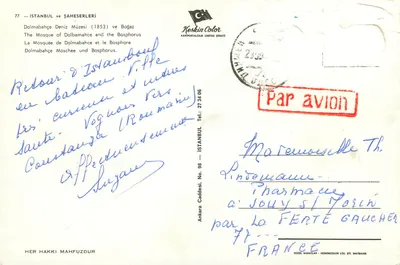 77 — İSTANBUL ve ŞAHESERLERİ
Dolmabahçe Deniz Müzesi (1853) ve Boğaz
The Mosque of Dolbamehce and the Bosphorus
La Mosquée de Dolmabahçe et le Bosphore
Dolmabahçe Moschee und Bosphorus.
Keskin Color
Retour d'Istanboul
en bateau. Ville
très curieuse et
Santé. Voguons vers
Constanza (Roumanie)
Affectueusement
Suzanne
Ankara Caddesi, No. 98 — İSTANBUL Tel: 27 24 06
par avion
Mademoiselle Th.
Lindemann
Pharmacie
à Jouy s/ Morin
par La FERTÉ GAUCHER
77 ---
FRANCE
HER HAKKI MAHFUZDUR